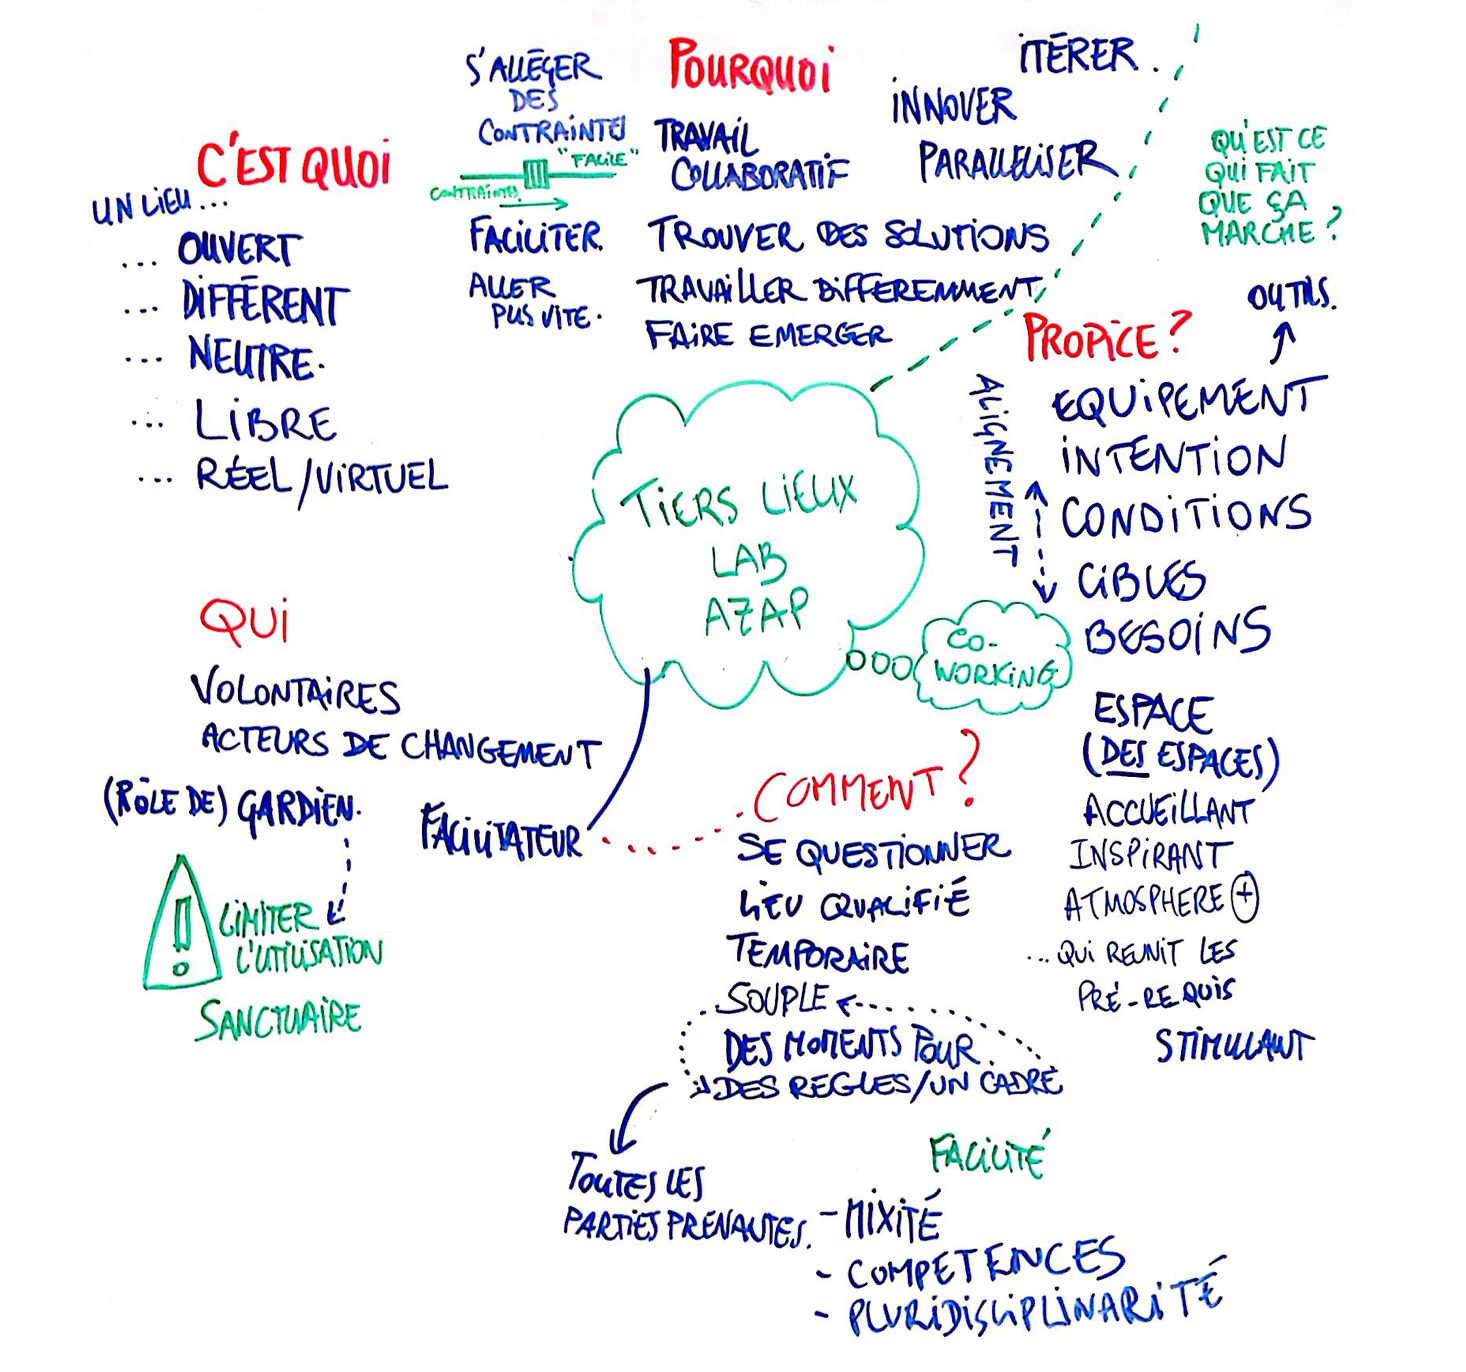 C'EST QUOI
UN LIEU...
... OUVERT
... DIFFÉRENT
... NEUTRE.
... LIBRE
... RÉEL/VIRTUEL
S'ALLÉGER
DES
CONTRAINTES
"FACILE"
CONTRAINTES
FACILITER.
ALLER
PLUS VITE.
POURQUOI
TRAVAIL
COLLABORATIF
TROUVER DES SOLUTIONS
TRAVAILLER DIFFEREMMENT
FAIRE EMERGER
ITÉRER.
INNOVER
PARALLELISER
QU'EST CE
QUI FAIT
QUE ÇA
MARCHE ?
OUTILS.
PROPICE ?
ALIGNEMENT
EQUIPEMENT
INTENTION
CONDITIONS
CIBLES
BESOINS
TIERS LIEUX
LAB
AZAP
CO-
WORKING
ESPACE
(DES ESPACES)
ACCUEILLANT
INSPIRANT
ATMOSPHERE +
... QUI REUNIT LES
PRÉ-REQUIS
STIMULANT
QUI
VOLONTAIRES
ACTEURS DE CHANGEMENT
(RÔLE DE) GARDIEN.
FACILITATEUR
!
LIMITER
L'UTILISATION
SANCTUAIRE
COMMENT ?
SE QUESTIONNER
LIEU QUALIFIÉ
TEMPORAIRE
SOUPLE
DES MOMENTS POUR
DES REGLES/UN CADRE
TOUTES LES
PARTIES PRENANTES.
FACILITÉ
- MIXITÉ
- COMPETENCES
- PLURIDISCIPLINARITÉ